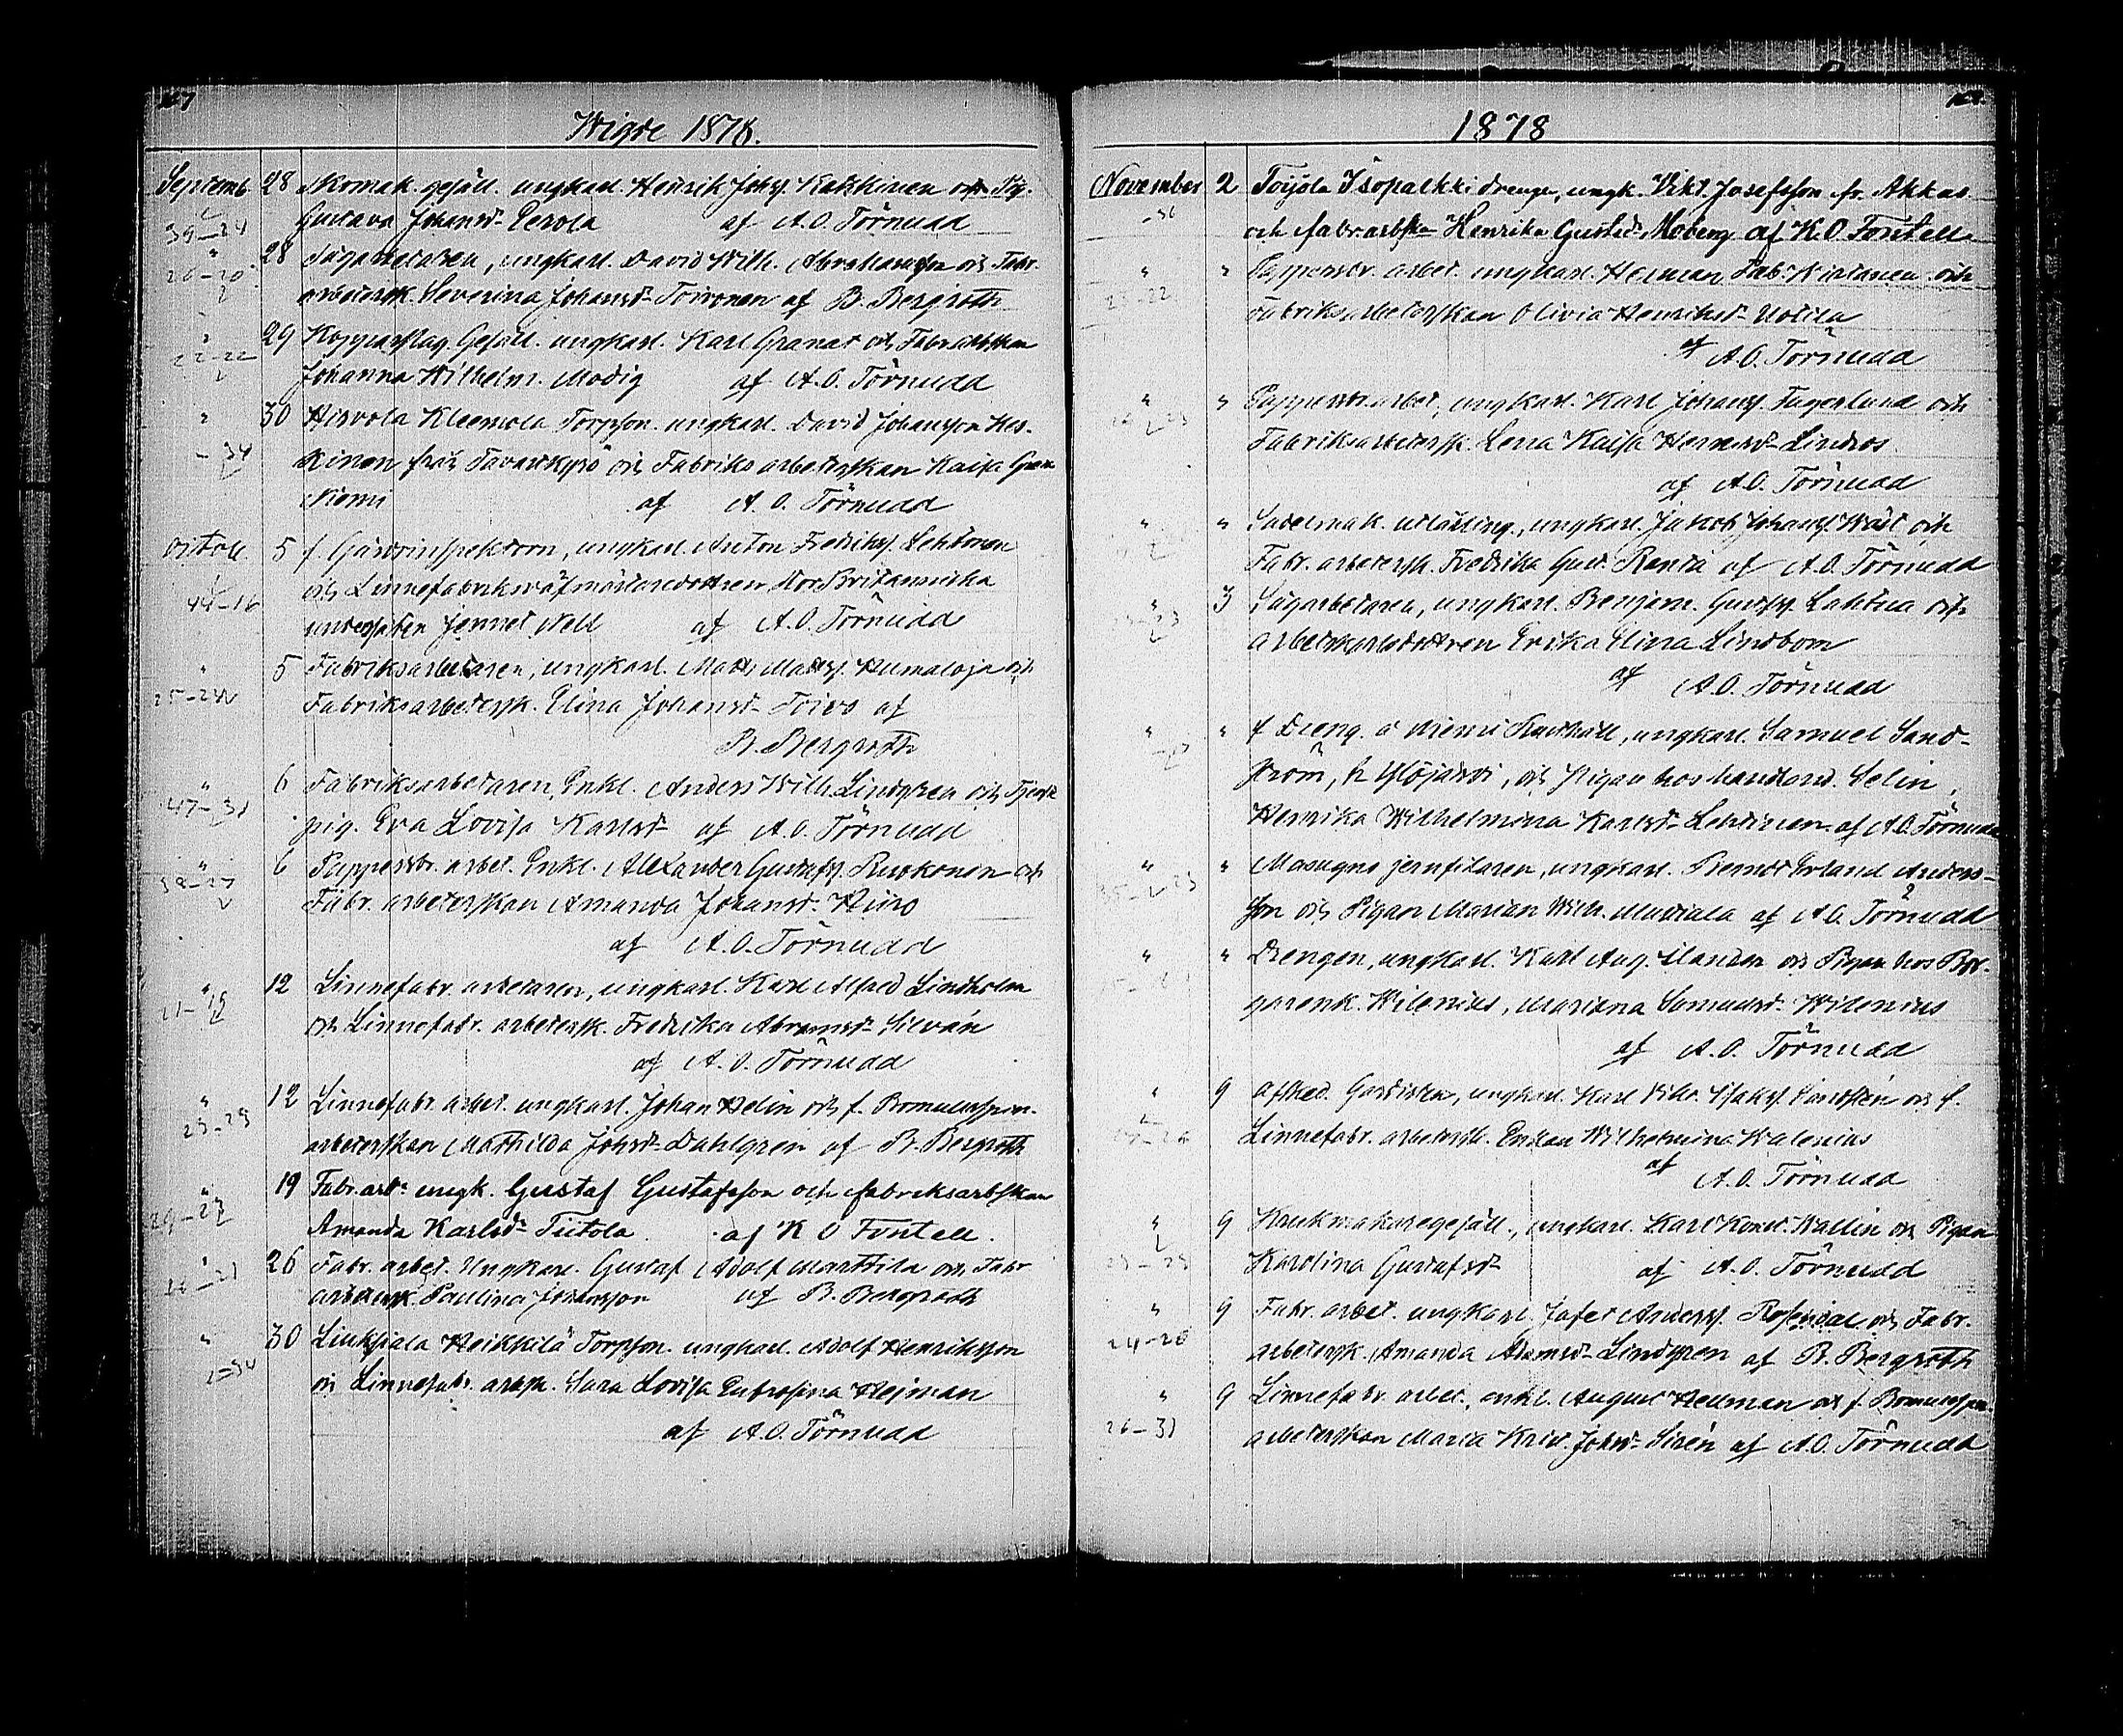 Wigde 1878.
Septemb. 28 Skomak. gesäll. ungkarl. Henrik Johss. Katkkinen och Pig.
39–24 Gustava Johansd:r Perola af A.O. Törnudd
" 28 Sågarbetaren, ungkarl. David Wilh. Abrahamsson och Fabr.
26–20 arbetersk. Severina Johansd:r Toivonen af B. Bergroth
" 29 Kopparslag. Gesäll. ungkarl. Karl Granat och Fabr.arbskan
22–22 Johanna Wilhelm. Modig af A.O. Törnudd
" 30 Hirvola Kleemola Torpson. ungkarl. David Johansson Hes-
–34 kinen från Tavastkyrö och Fabriks arbeterskan Kaisa
Niemi af A.O. Törnudd
Octob. 5 f. Gårdsinspektorn, ungkarl Anton Fredrikss. Lehtonen
44–16 och Linnefabriksväfmästaredottren Stor Britanniska
undersåten Jennet Nell af A.O. Törnudd
" 5 Fabriksarbetaren, ungkarl. Matts Matss. Humaloja och
25– Fabriksarbetersk. Elina Johansd:r Toivo af
B. Bergroth
" 6 Fabriksarbetaren, Enkl. Anders Wilh. Lindgren och Tjenste
47–31 pig. Eva Lovisa Karlsd:r af A.O. Törnudd
" 6 Pappersbr. arbet. Enkl. Alexander Gustafss. Ruokonen och
Fabr. arbeterskan Amanda Johansd:r
af A.O. Törnudd
" 12 Linnefabr. arbetaren, ungkarl. Karl Alfred Lindholm
21–19 och Linnefabr. arbetersk. Fredrika Abramsd:r Silvén
af A.O. Törnudd
" 12 Linnefabr. arbet. ungkarl. Johan Helin och f. Bomullsspin.
23–29 arbeterskan Mathilda Johsd:r Dahlgren af B. Bergroth
" 19 Fabr.arb:n ungk. Gustaf Gustafsson och fabriksarbskan
29–27 Amanda Karlsd:r Tiitola af K O Fontell.
" 26 Fabr. arbet. Ungkarl. Gustaf Adolf Marttila och Fabr
–21 arbetersk. Paulina Johansson af B. Bergroth
" 30 Linksiala Heikkilä Torpson. ungkarl. Adolf Henriksson
–34 och Linnefabr. arbsk. Sara Lovisa Eufrosina Hejman
af A.O. Törnudd
1878
November 2 Toijola Isopalkki drenge, ungk. Vikt. Josefsson fr. Akkas
–36 och fabrarbskan Henrika Gustsd:r Moberg af K.O. Fontell
" " Pappersbr. arbet. ungkarl. Herman Fab. och
–22 Fabriksarbeterskan Olivia Henriksd:r Uotila
af A.O. Törnudd
" " Pappersbr.arbet., ungkarl. Karl Johanss. Fagerlund och
–23 Fabriksarbetersk. Lena Kaisa Henriksd:r Lindros
af A.O. Törnudd
" " Sadelmak. utlärling, ungkarl. Jakob Johanss. och
Fabr. arbetersk. Fredrika Gust. Ranta af A.O. Törnudd
" 3 Sågarbetaren, ungkarl. Benjam. Gustfss. Lahtua och
–23 arbetskarlsdottren Erika Elina Lindbom
af A.O. Törnudd
" " f Dreng. å Niemi Rusthåll, ungkarl. Samuel Sand-
ström, fr Ylöjärvi, och Pigan hos handland. Selin,
Henrika Wilhelmina Karlsd:r Lehtinen af A.O. Törnudd
" " Masugns jernfilaren, ungkarl. Erland Anders-
35–23 son och Pigan Marian Wilh. af A.O. Törnudd
" " Drengen, ungkarl. Karl Aug. Ilander och Pigan hos Bor-
garenk. Wilenius, Mariana Samuelsd:r Widenius
af A.O. Törnudd
" 9 Afsked. Gardisten, ungkarl. Karl Isakss. Lindstén och f.
Linnefabr. arbetersk. Enkan Wilhelmina Walenius
af A.O. Törnudd
" 9 Krukmakaregesäll., ungkarl. Karl Konst. Wallin och Pigan
Karolina Gustafsd:r af A.O. Törnudd
" 9 Fabr. arbet. ungkarl. Jafet Anderss. Rosendal och Fabr.
24–20 arbetersk. Amanda Adamsd:r Lindgren af B. Bergroth
" 9 Linnefabr. arbet., enkl. August Hellman och f. Bomullsspin.
26–31 arbeterskan Maria Krist. Johsd:r Sirén af A.O. Törnudd